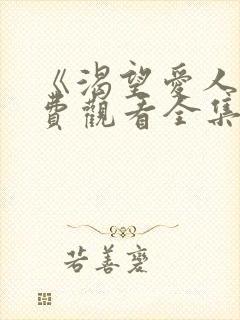 《渴望愛人
費觀看全集
若善裛